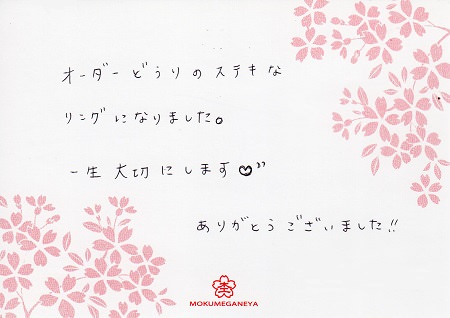 オーダーどうりのステキな
リングになりました。
一生大切にします♡"
ありがとうございました!!
MOKUMEGANEYA